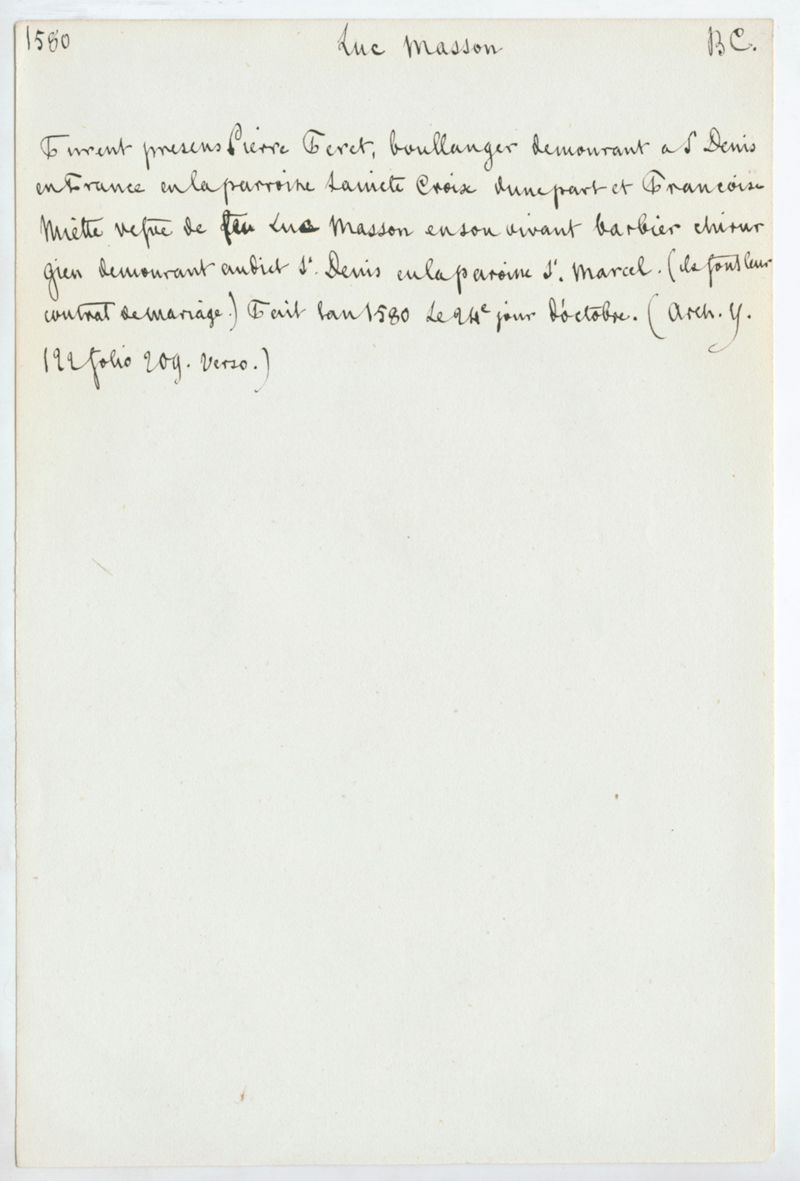 1580 Luc Masson BC.
Furent presens Pierre Feret, boullanger demourant a St Denis
en France en la parroisse Saincte Croix dune part et Francoise
Miette vefue de feu Luc Masson en son vivant barbier chirur
gien demourant audict St. Denis en la paroisse St. Marcel. (ils font leur
contrat de mariage.) Fait lan 1580 le 24e jour d'octobre. (Arch. Y.
122 folio 209. verso.)